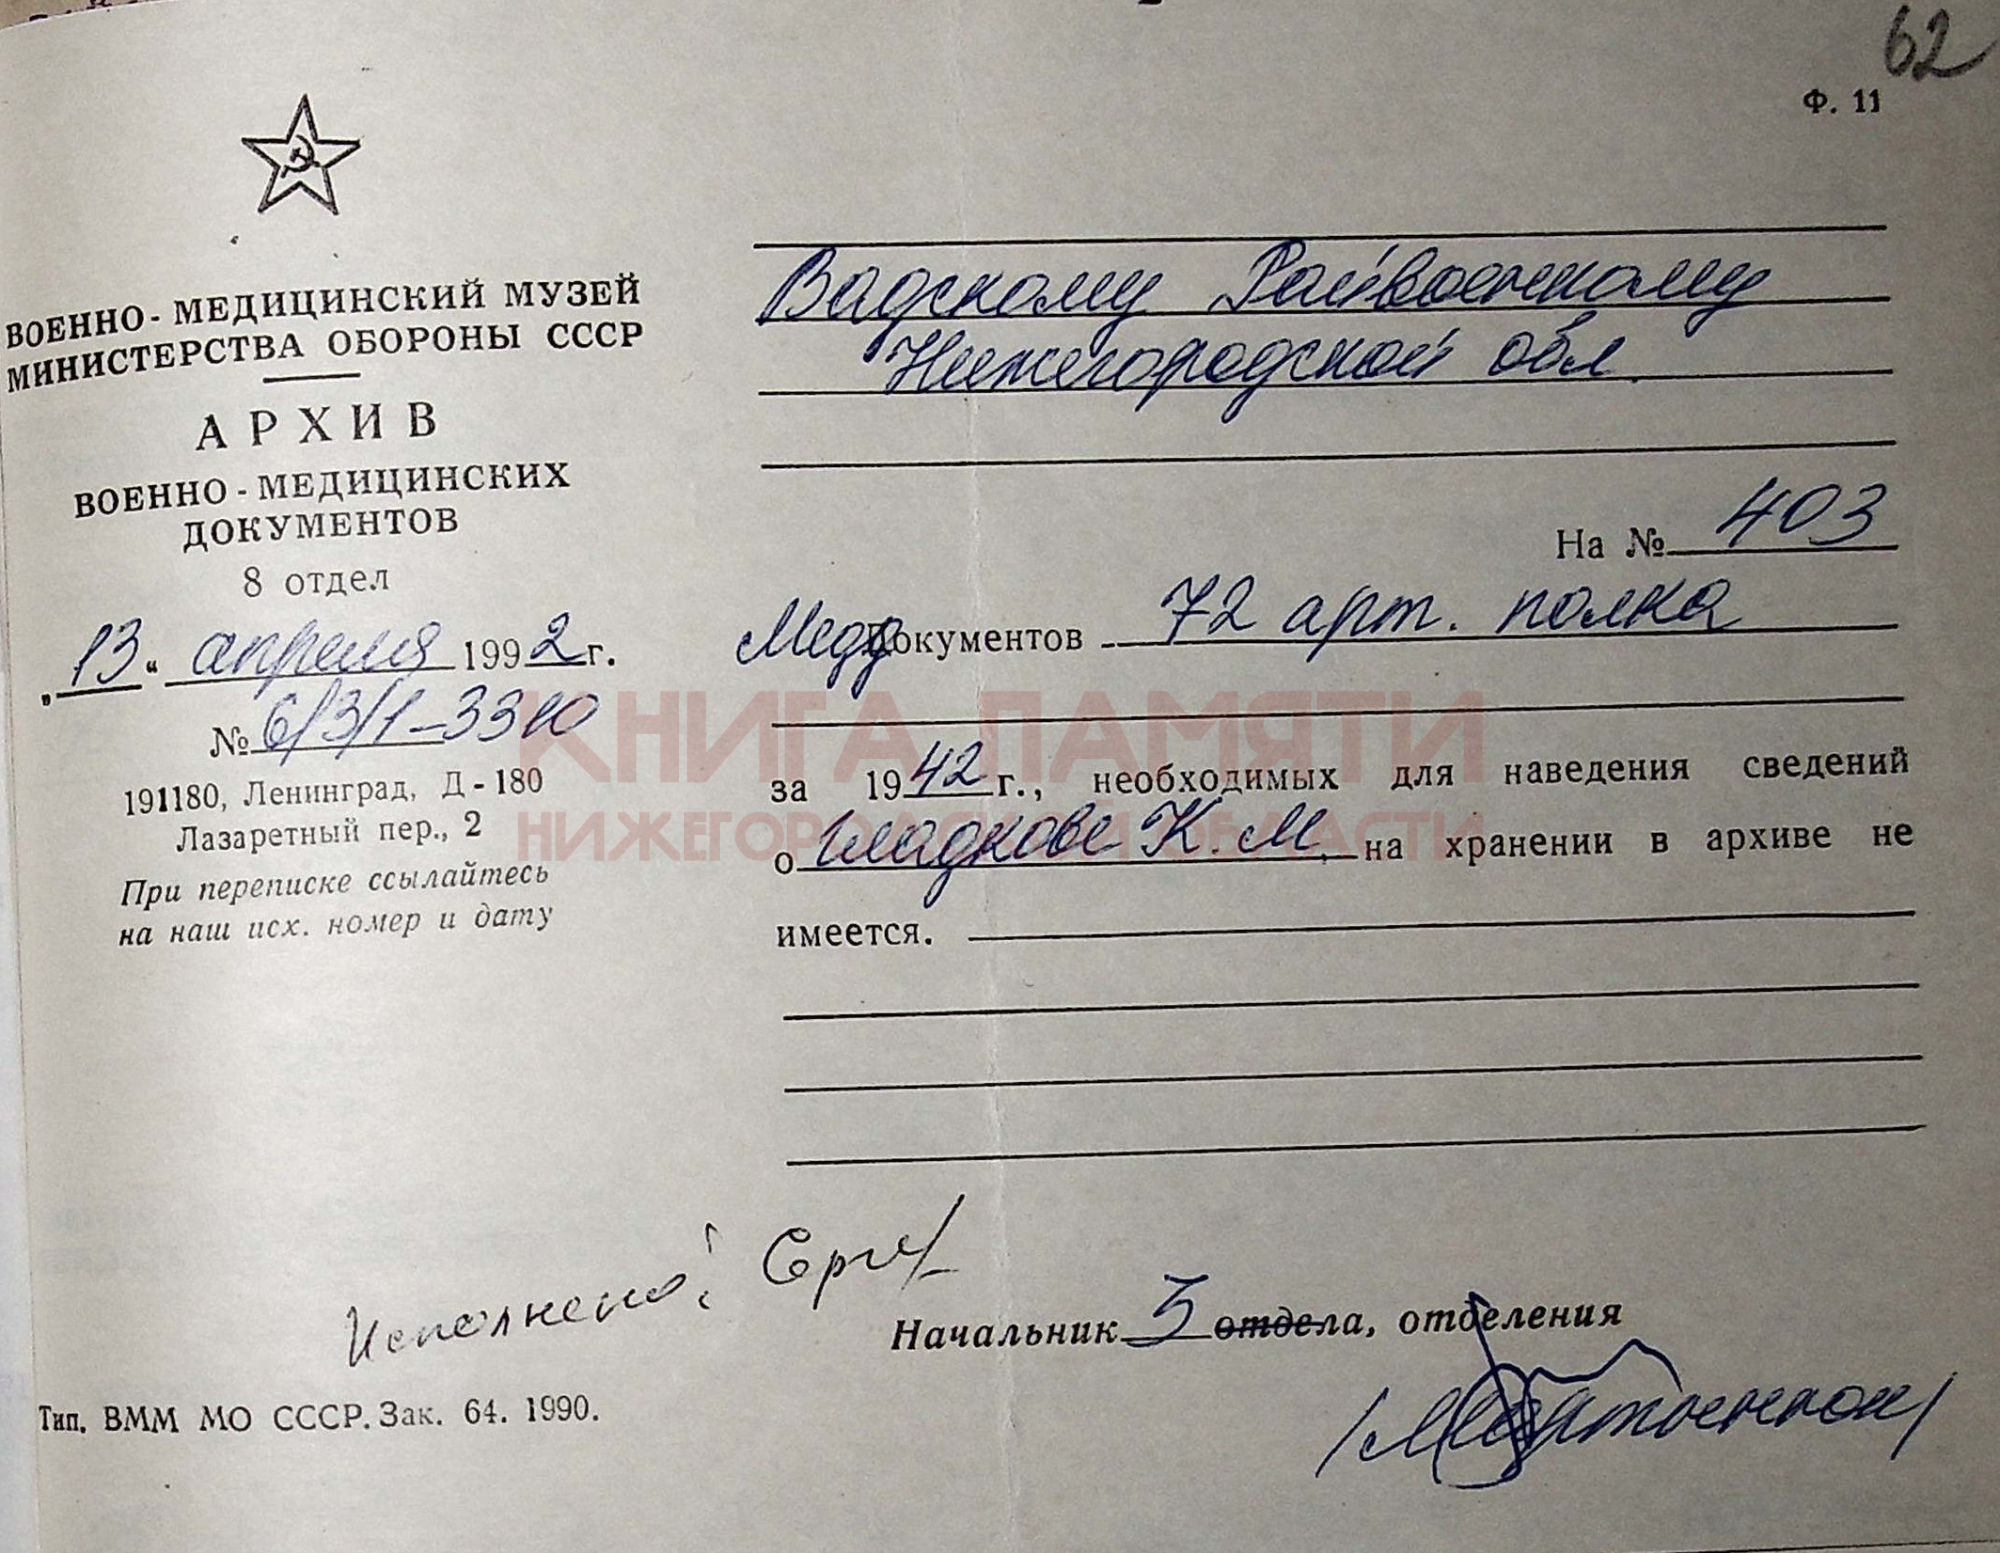 62
Ф. 11
ВОЕННО-МЕДИЦИНСКИЙ МУЗЕЙ
МИНИСТЕРСТВА ОБОРОНЫ СССР
АРХИВ
ВОЕННО-МЕДИЦИНСКИХ
ДОКУМЕНТОВ
8 отдел
„13“ апреля 1992 г.
№ 6/3/1-3310
191180, Ленинград, Д-180
Лазаретный пер., 2
При переписке ссылайтесь
на наш исх. номер и дату
Вадскому Райвоенкому
Нижегородской обл.
На № 403
Меддокументов 72 арт. полка
за 1942 г., необходимых для наведения сведений
о Гладкове К.М. на хранении в архиве не
имеется.
КНИГА ПАМЯТИ
НИЖЕГОРОДСКОЙ ОБЛАСТИ
Исполнено:
Начальник 3 отдела, отделения
Тип. ВММ МО СССР. Зак. 64. 1990.